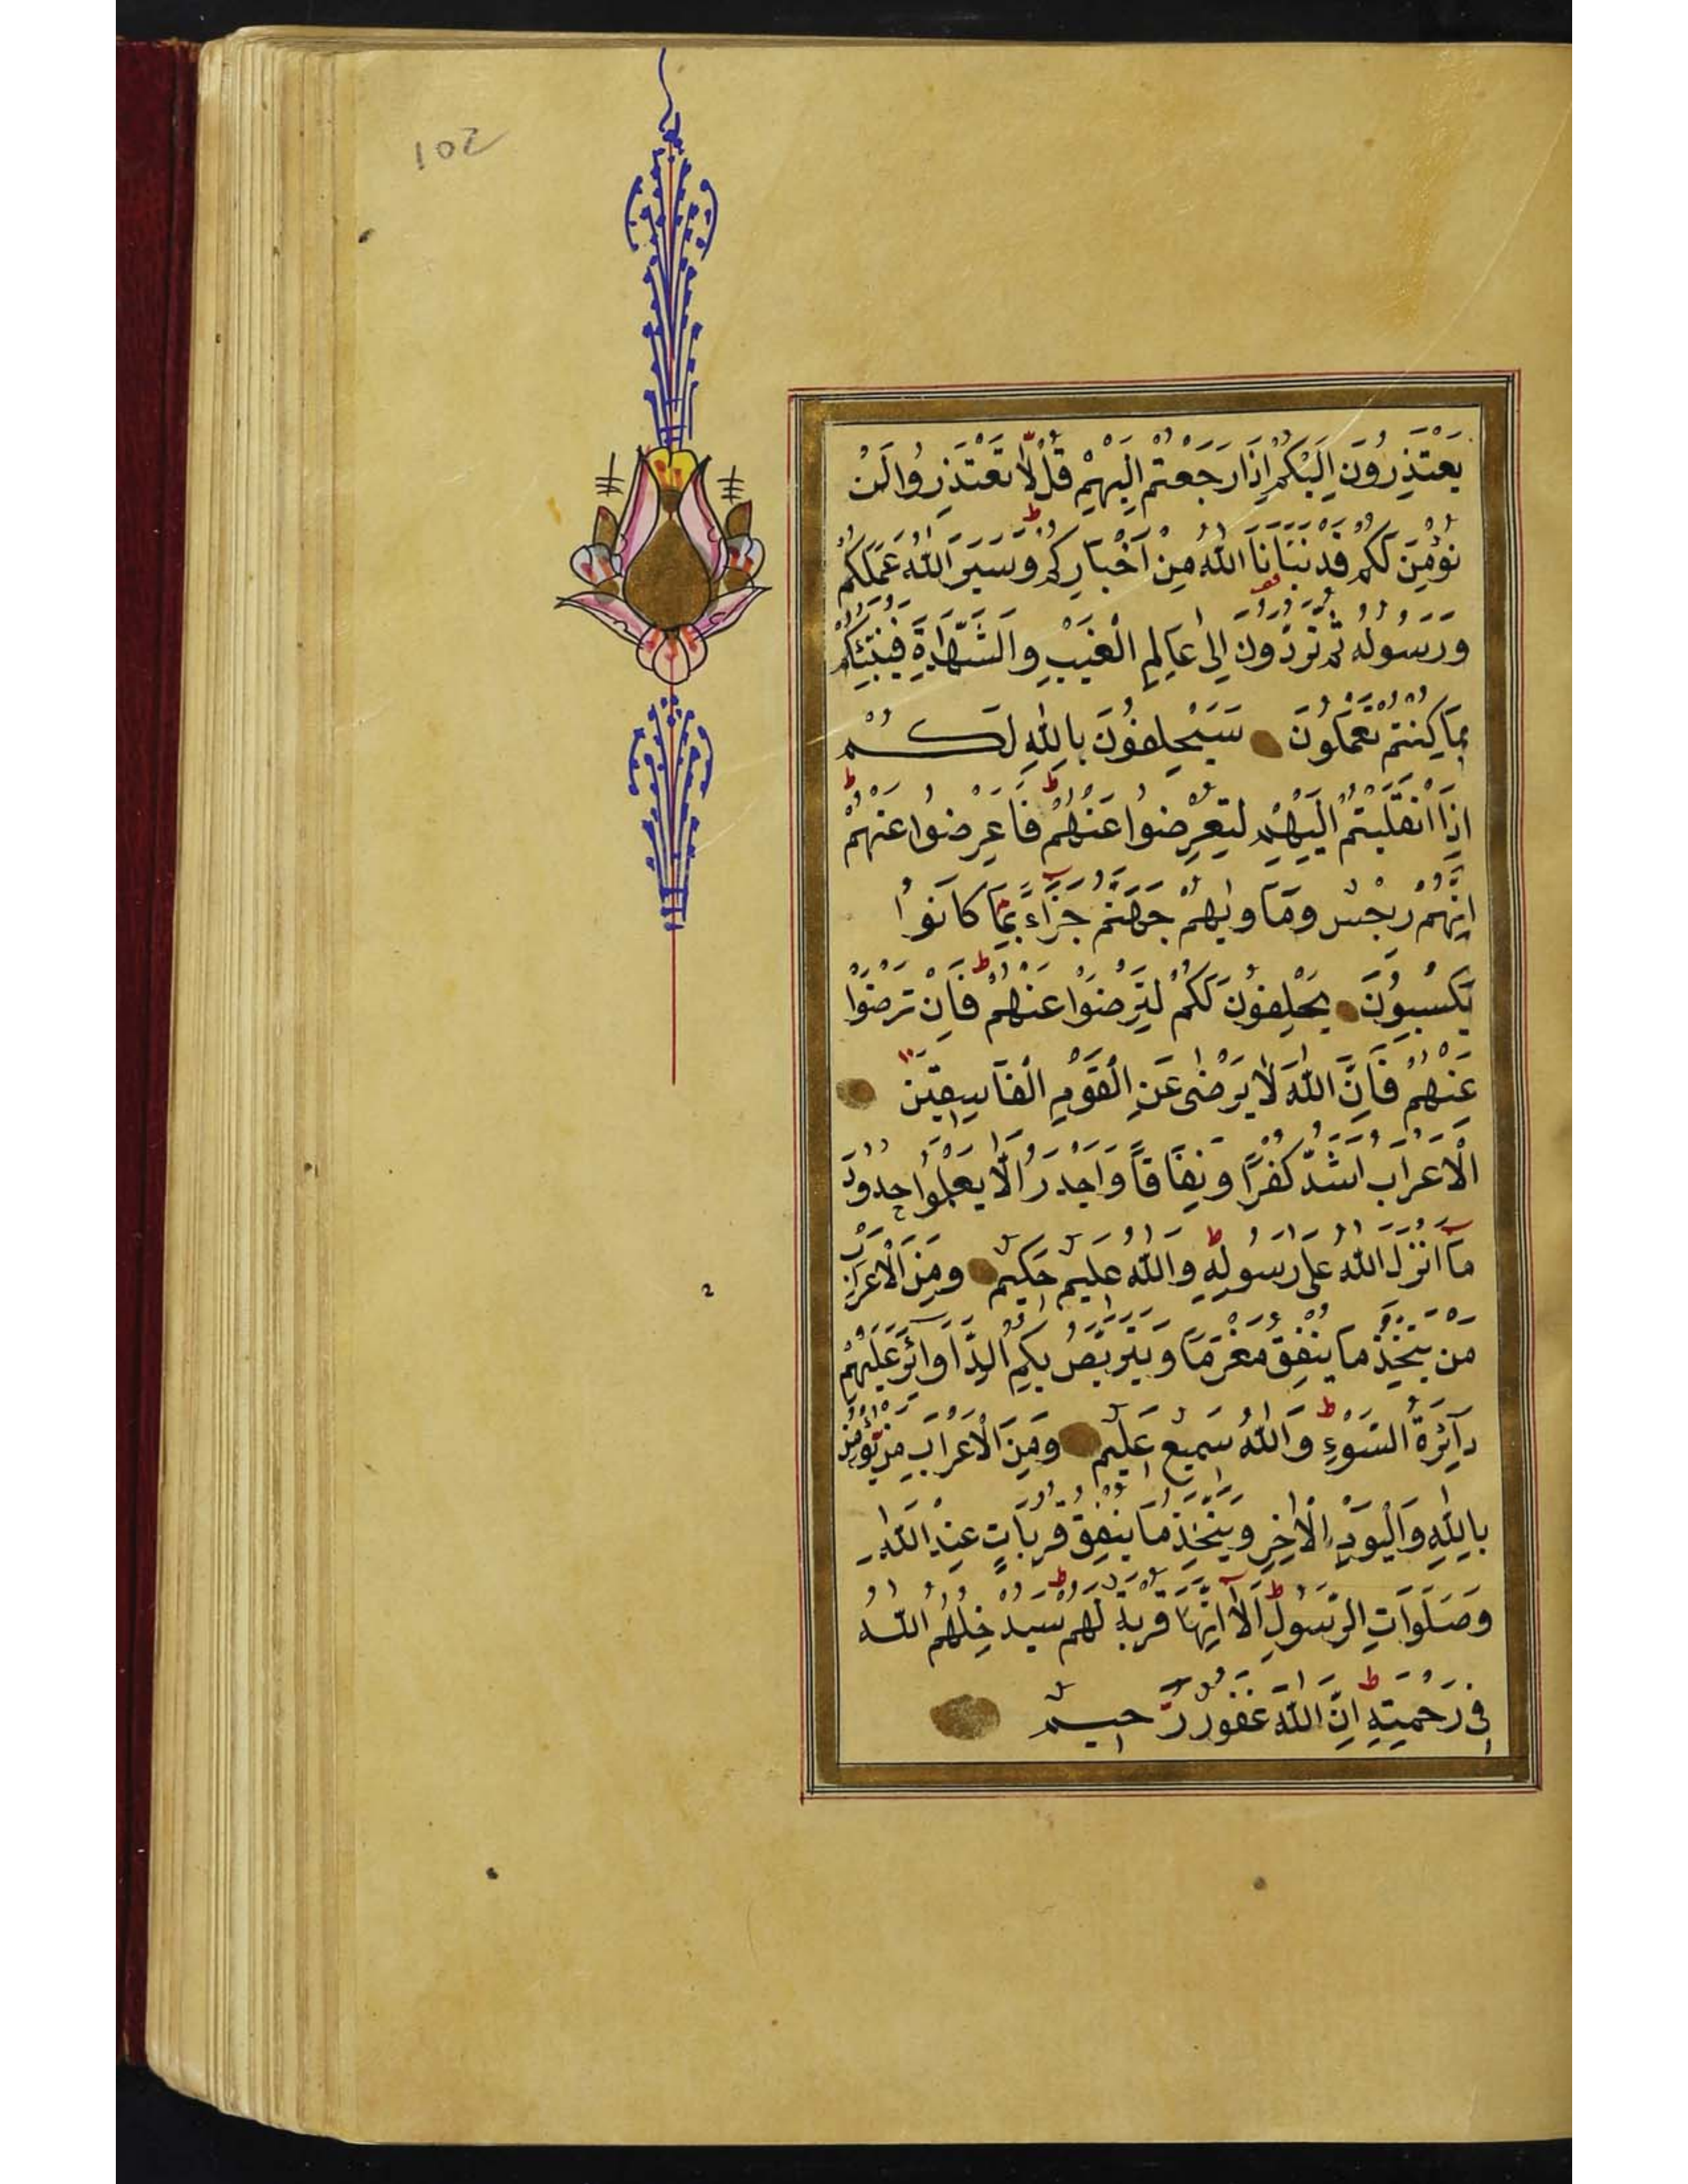 102
يَعْتَذِرُونَ اِلَيْكُمْ اِذَا رَجَعْتُمْ اِلَيْهِمْ قُلْ لَا تَعْتَذِرُوا لَنْ
نُؤْمِنَ لَكُمْ قَدْ نَبَّاَنَا اللّٰهُ مِنْ اَخْبَارِكُمْ وَسَيَرَى اللّٰهُ عَمَلَكُمْ
وَرَسُولُهُ ثُمَّ تُرَدُّونَ اِلٰى عَالِمِ الْغَيْبِ وَالشَّهَادَةِ فَيُنَبِّئُكُمْ
بِمَا كُنْتُمْ تَعْمَلُونَ سَيَحْلِفُونَ بِاللّٰهِ لَكُمْ
اِذَا انْقَلَبْتُمْ اِلَيْهِمْ لِتُعْرِضُوا عَنْهُمْ فَاَعْرِضُوا عَنْهُمْ
اِنَّهُمْ رِجْسٌ وَمَاْوٰيهُمْ جَهَنَّمُ جَزَاءً بِمَا كَانُوا
يَكْسِبُونَ يَحْلِفُونَ لَكُمْ لِتَرْضَوْا عَنْهُمْ فَاِنْ تَرْضَوْا
عَنْهُمْ فَاِنَّ اللّٰهَ لَا يَرْضٰى عَنِ الْقَوْمِ الْفَاسِقِينَ
الْاَعْرَابُ اَشَدُّ كُفْرًا وَنِفَاقًا وَاَجْدَرُ اَلَّا يَعْلَمُوا حُدُودَ
مَا اَنْزَلَ اللّٰهُ عَلٰى رَسُولِهِ وَاللّٰهُ عَلِيمٌ حَكِيمٌ وَمِنَ الْاَعْرَابِ
مَنْ يَتَّخِذُ مَا يُنْفِقُ مَغْرَمًا وَيَتَرَبَّصُ بِكُمُ الدَّوَائِرَ عَلَيْهِمْ
دَائِرَةُ السَّوْءِ وَاللّٰهُ سَمِيعٌ عَلِيمٌ وَمِنَ الْاَعْرَابِ مَنْ يُؤْمِنُ
بِاللّٰهِ وَالْيَوْمِ الْاٰخِرِ وَيَتَّخِذُ مَا يُنْفِقُ قُرُبَاتٍ عِنْدَ اللّٰهِ
وَصَلَوَاتِ الرَّسُولِ اَلَا اِنَّهَا قُرْبَةٌ لَهُمْ سَيُدْخِلُهُمُ اللّٰهُ
فِي رَحْمَتِهِ اِنَّ اللّٰهَ غَفُورٌ رَحِيمٌ